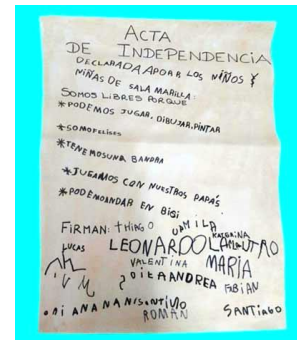 ACTA
DE INDEPENDENCIA
DECLARADA A POR LOS NIÑOS Y
NIÑAS DE SALA MARILLA:
SOMOS LIBRES PORQUE
*PODEMOS JUGAR, DIBUJAR, PINTAR
*SOMOFELISES
*TENEMOSUNA BANDRA
*JUGAMOS CON NUESTROS PAPÁS
*PODEMOANDAR EN BISI
FIRMAN: THIAGO CAMILA KATERINA
LUCAS LEONARDO LAUTRO
VALENTINA MARIA
ANDREA FABIAN
ROMÁN SANTIAGO